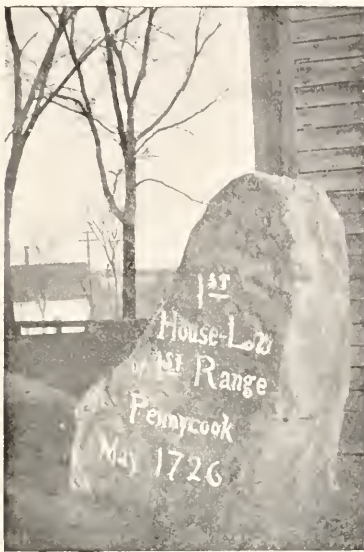 1ST
House-Lot
1ST Range
Pennycook
May 1726